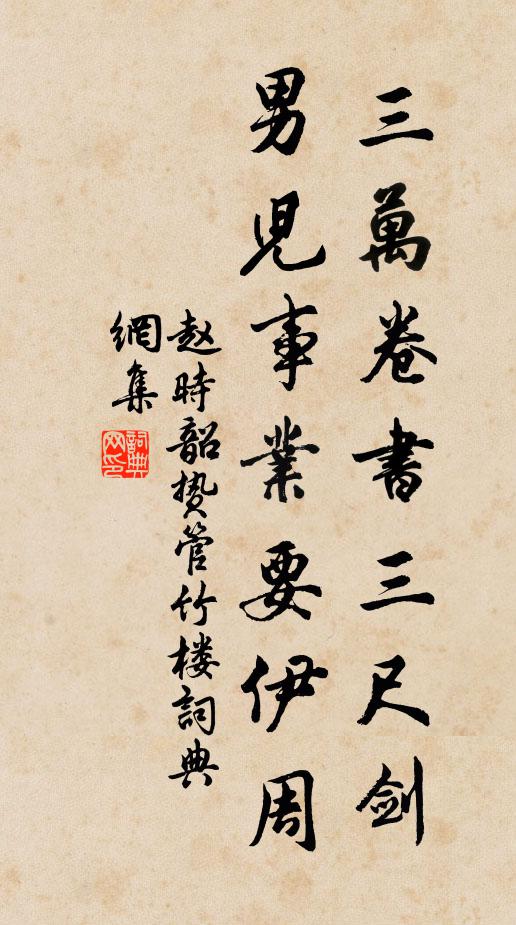 三萬卷書三尺剑
男児事業要伊周
赵時韶贽管竹楼詞典
網集
詞典
网印